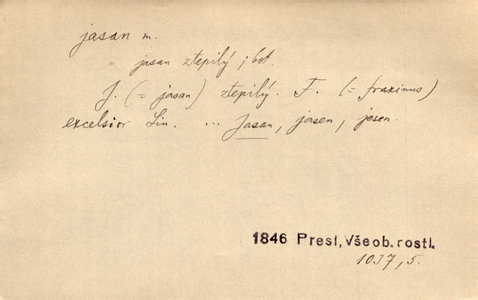 jasan m.
= jasan ztepilý; bot.
J. (= jasan) ztepilý. F. (= fraxinus)
excelsior Lin. ... Jasan, jasen, jesen.
1846 Presl, Všeob. rostl.
1037, 5.